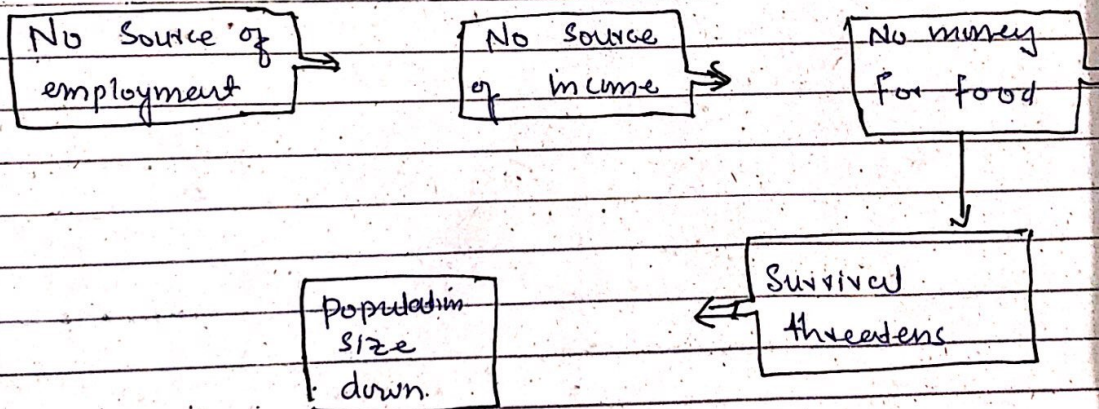 No Source of
employment
No Source
of income
No money
For food
Survival
threatens
population
size
down.